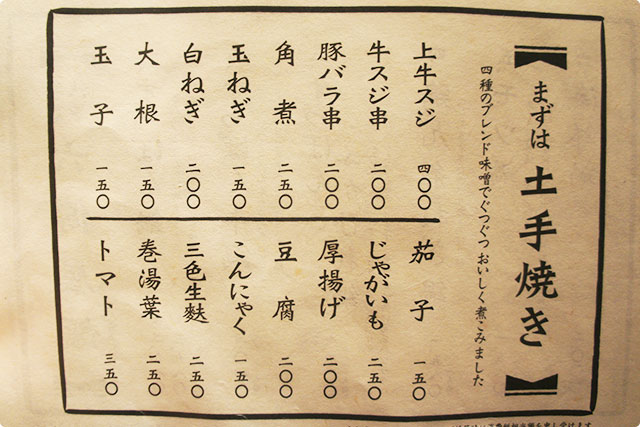 まずは 土手焼き
四種のブレンド味噌でぐつぐつ おいしく煮こみました
上牛スジ 四〇〇
牛スジ串 二〇〇
豚バラ串 二〇〇
角煮 二五〇
玉ねぎ 一五〇
白ねぎ 二〇〇
大根 一五〇
玉子 一五〇
茄子 一五〇
じゃがいも 二五〇
厚揚げ 二〇〇
豆腐 二〇〇
こんにゃく 一五〇
三色生麩 二五〇
巻湯葉 二五〇
トマト 三五〇